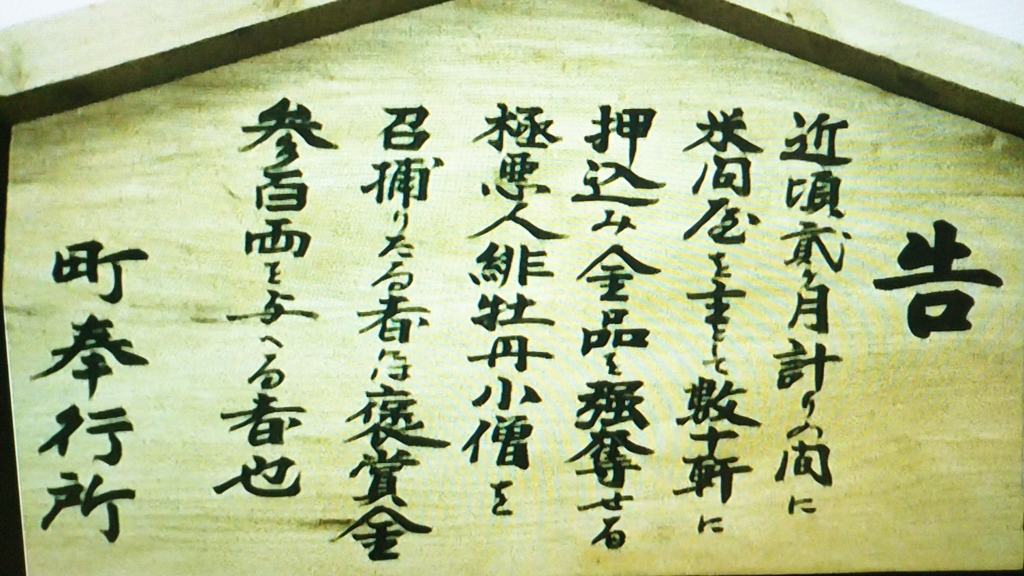 告
近頃貳ヶ月計りの間に
米問屋を主として数十軒に
押込み金品を强奪せる
極悪人緋牡丹小僧を
召捕りたる者には褒賞金
参百両を与へる者也
町奉行所